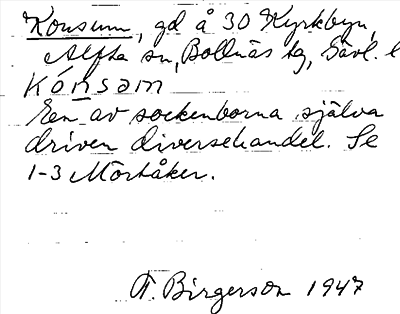 Konsum, gd å 30 Kyrkbyn,
Alfta sn, Bollnäs tg, Gävl. l
Kónsam
En av sockenborna själva
driven diversehandel. Se
1-3 Mörtåker.
F. Birgerson 1947